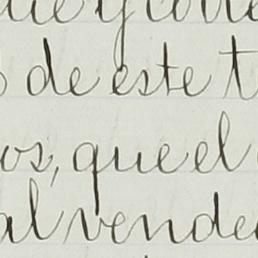 de este t
os, que el
al vende